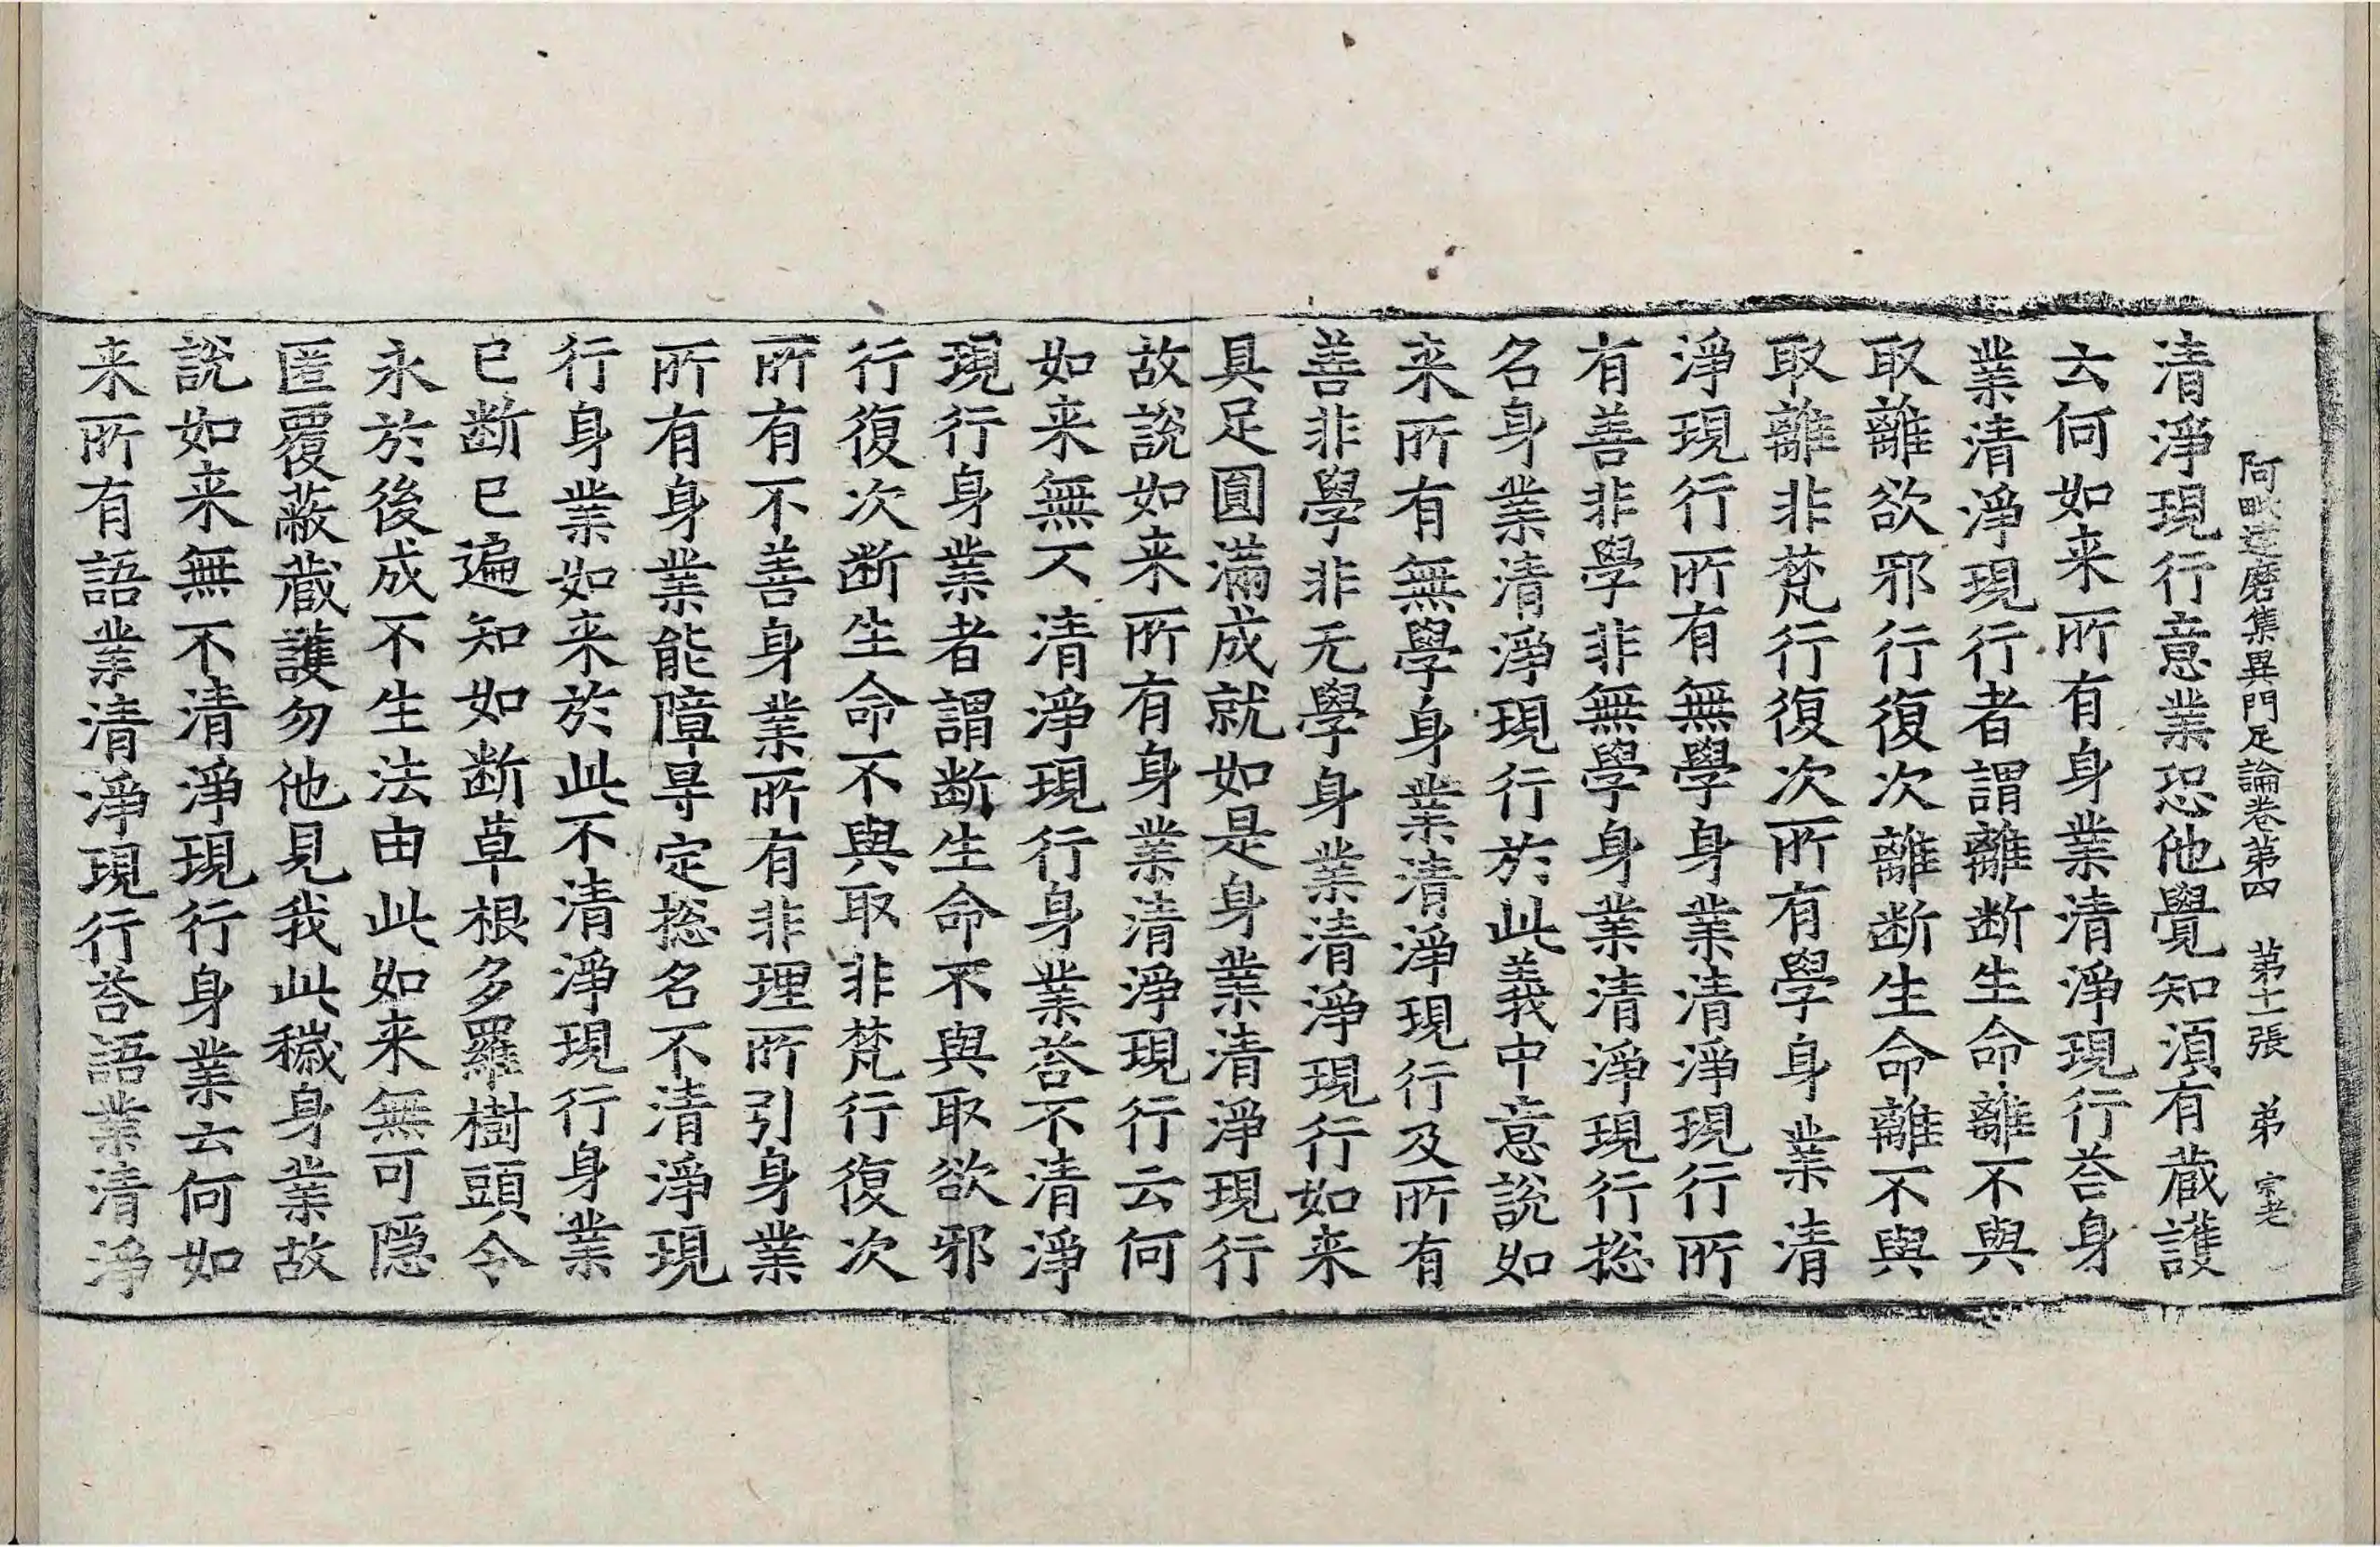 阿毗達磨集異門足論卷第四　第十一張　弟　宗老
清淨現行意業恐他覺知湏有蔵護
云何如来所有身業清淨現行荅身
業清淨現行者謂離断生命離不與
取離欲邪行復次離断生命離不與
取離非梵行復次所有學身業清
淨現行所有無學身業清淨現行所
有善非學非無學身業清淨現行揔
名身業清淨現行於此義中意說如
来所有無學身業清淨現行及所有
善非學非无學身業清淨現行如来
具足圓滿成就如是身業清淨現行
故說如来所有身業清淨現行云何
如来無不清淨現行身業荅不清淨
現行身業者謂断生命不與取欲邪
行復次断生命不與取非梵行復次
所有不善身業所有非理所引身業
所有身業能障㝵定揔名不清淨現
行身業如来於此不清淨現行身業
已断已遍知如断草根多羅樹頭令
永於後成不生法由此如来無可隠
匿覆蔽蔵護勿他見我此穢身業故
說如来無不清淨現行身業云何如
来所有語業清淨現行荅語業清淨